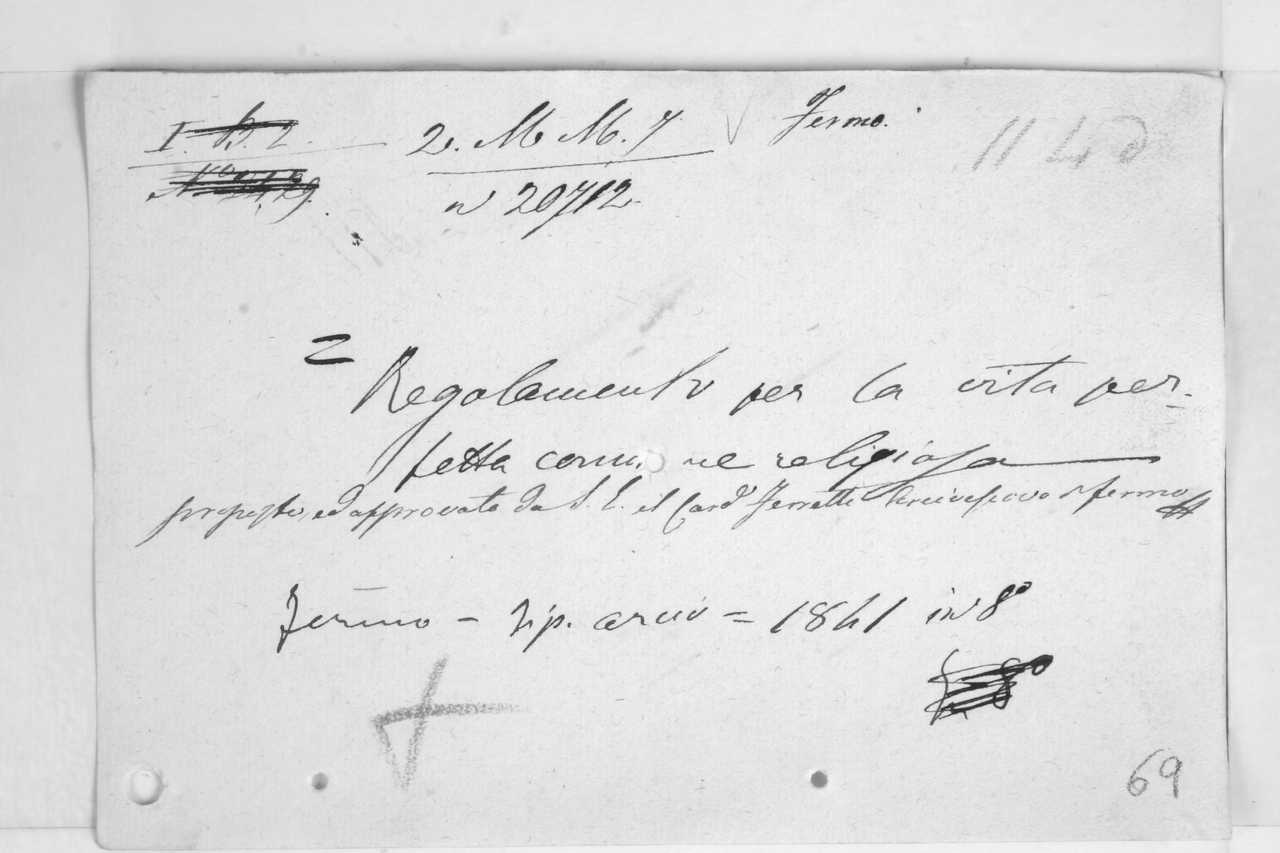 I. B. 2.
2. M M. 7
Fermo.
1140
n 20712
= Regolamento per la vita per-
fetta comune religiosa
proposto, ed approvato da S. E. il Card. Ferretti Arcivescovo di Fermo
Fermo - Tip. arciv = 1841 in 8°
69